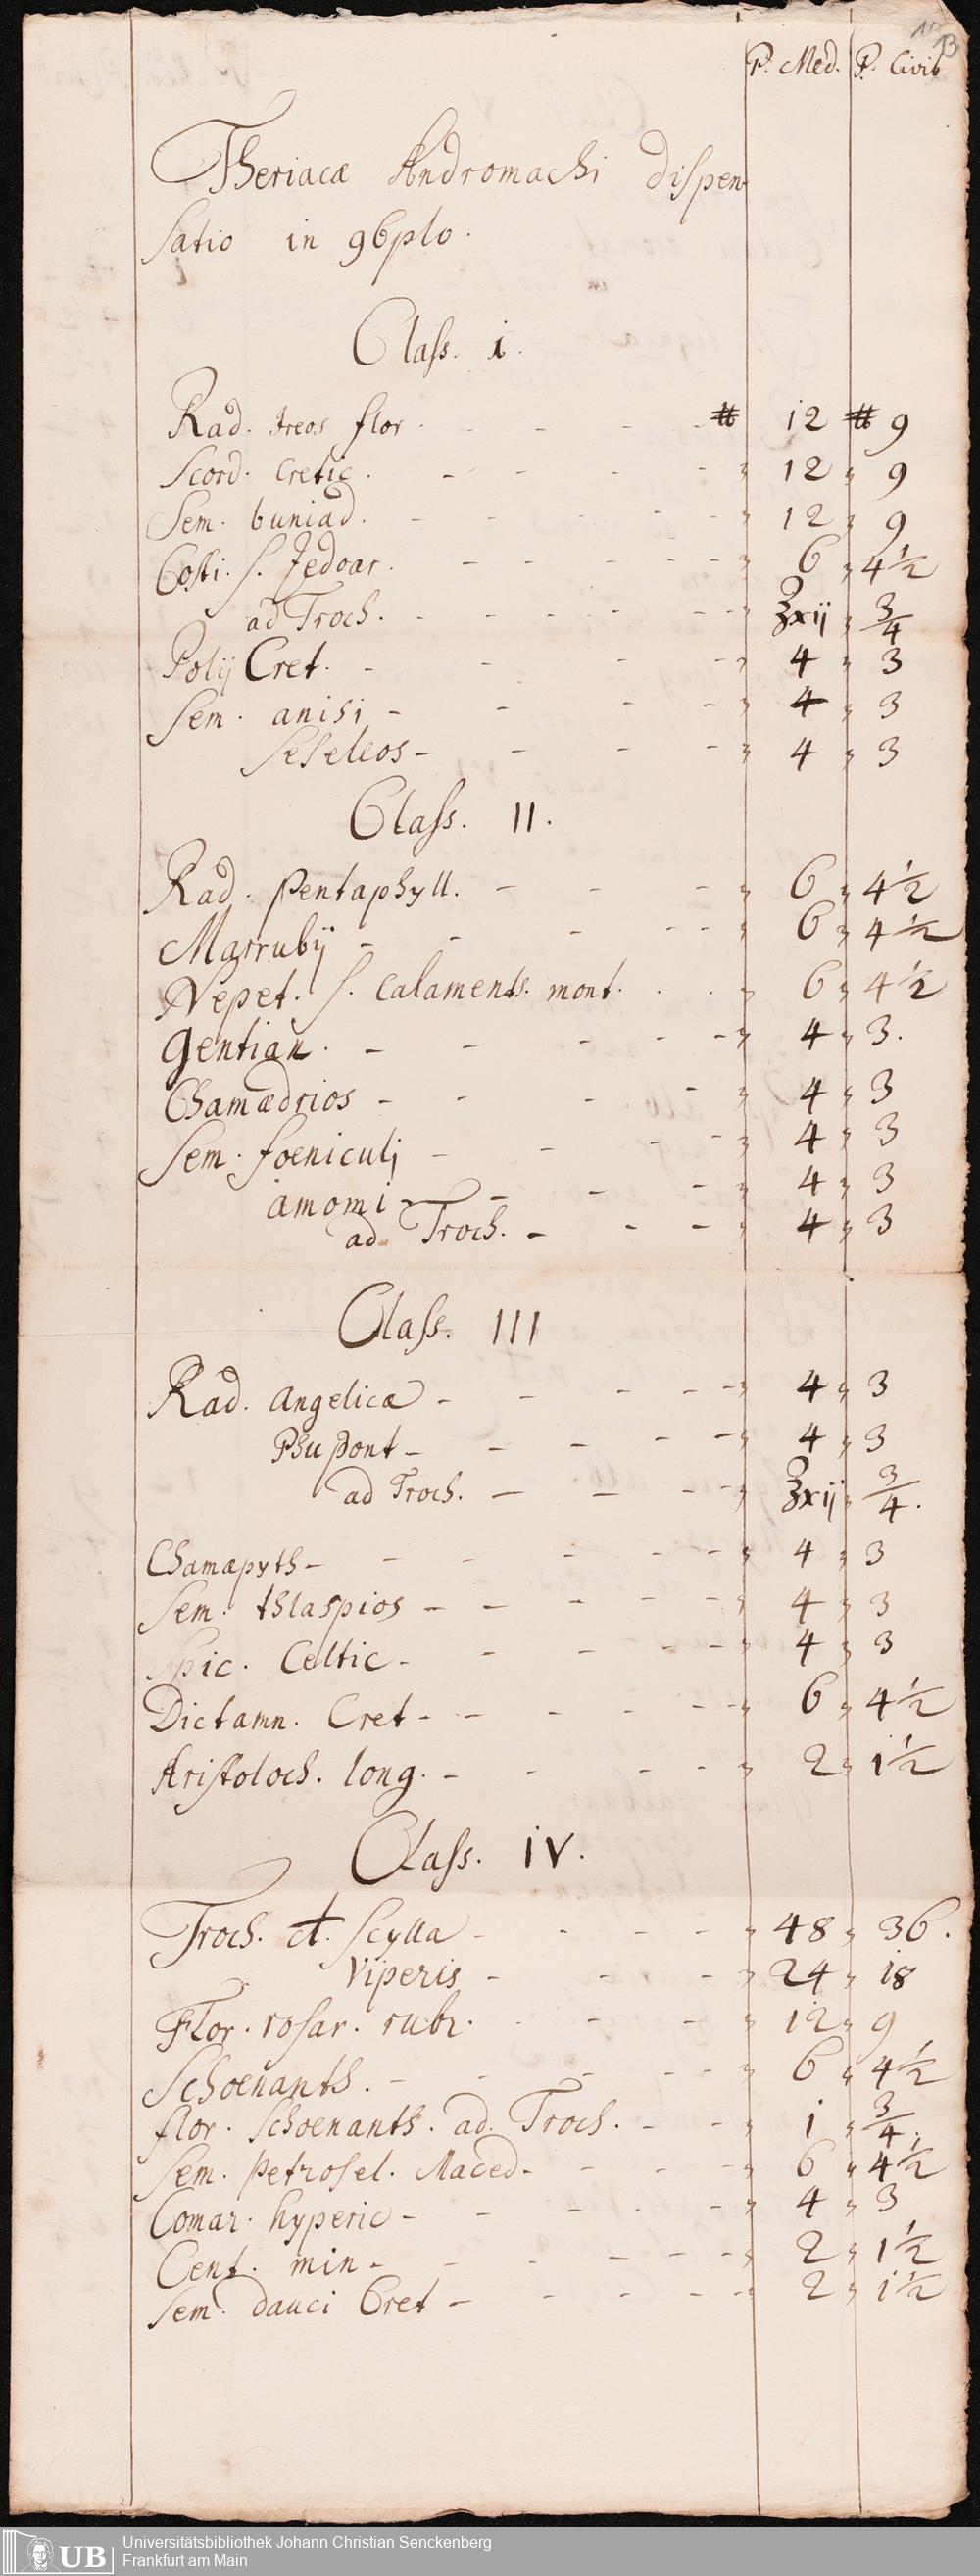 13
P. Med. P. Civil
Theriacæ Andromachi dispen
satio in 96plo.
Class. i.
Rad. Ireos flor. - - - ℔ 12 ℔ 9
Scord. Cretic. - - - - „ 12 „ 9
Sem. buniad. - - - - „ 12 „ 9
Costi. s. Zedoar. - - - - „ 6 „ 4½
ad Troch. - - - - „ ℥xij „ 3/4
Polij Cret. - - - - „ 4 „ 3
Sem. anisi - - - - „ 4 „ 3
Seseleos - - - - „ 4 „ 3
Class. II.
Rad. Pentaphyll. - - - „ 6 „ 4½
Marrubij - - - - „ 6 „ 4½
Nepet. s. calaments. mont. . . „ 6 „ 4½
Gentian. - - - - „ 4 „ 3.
Chamædrios - - - - „ 4 „ 3
Sem. foeniculi - - - - „ 4 „ 3
amomi - - - „ 4 „ 3
ad Troch. - - - „ 4 „ 3
Class. III
Rad. Angelicæ - - - - „ 4 „ 3
Phu Pont - - - - „ 4 „ 3
ad Troch. - - - - „ ℥xij „ 3/4.
Chamæpyth - - - - „ 4 „ 3
Sem. thlaspios - - - - „ 4 „ 3
Spic. Celtic - - - - „ 4 „ 3
Dictamn. Cret - - - - „ 6 „ 4½
Aristoloch. long. - - - - „ 2 „ 1½
Class. iV.
Troch. Scylla - - - - „ 48 „ 36.
Viperis - - - „ 24 „ 18
Flor. rosar. rubr. - - - „ 12 „ 9
Schoenanth. - - - - „ 6 „ 4½
flor. Schoenanth. ad. Troch. - - „ 1 „ 3/4.
Sem. Petrosel. Maced - - - - „ 6 „ 4½
Comar. hyperic - - - - „ 4 „ 3
Cent. min - - - - „ 2 „ 1½
Sem. dauci Cret - - - - „ 2 „ 1½
UB
Universitätsbibliothek Johann Christian Senckenberg
Frankfurt am Main